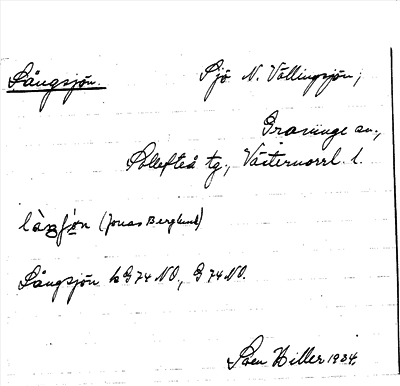 Långsjön. Sjö N. Vällingsjön,
Graninge sn.,
Sollefteå tg., Västernorrl. l.
làŋʃo̱n (Jonas Berglund)
Långsjön k G 74 NO., G 74 NO.
Sven Hiller 1934.